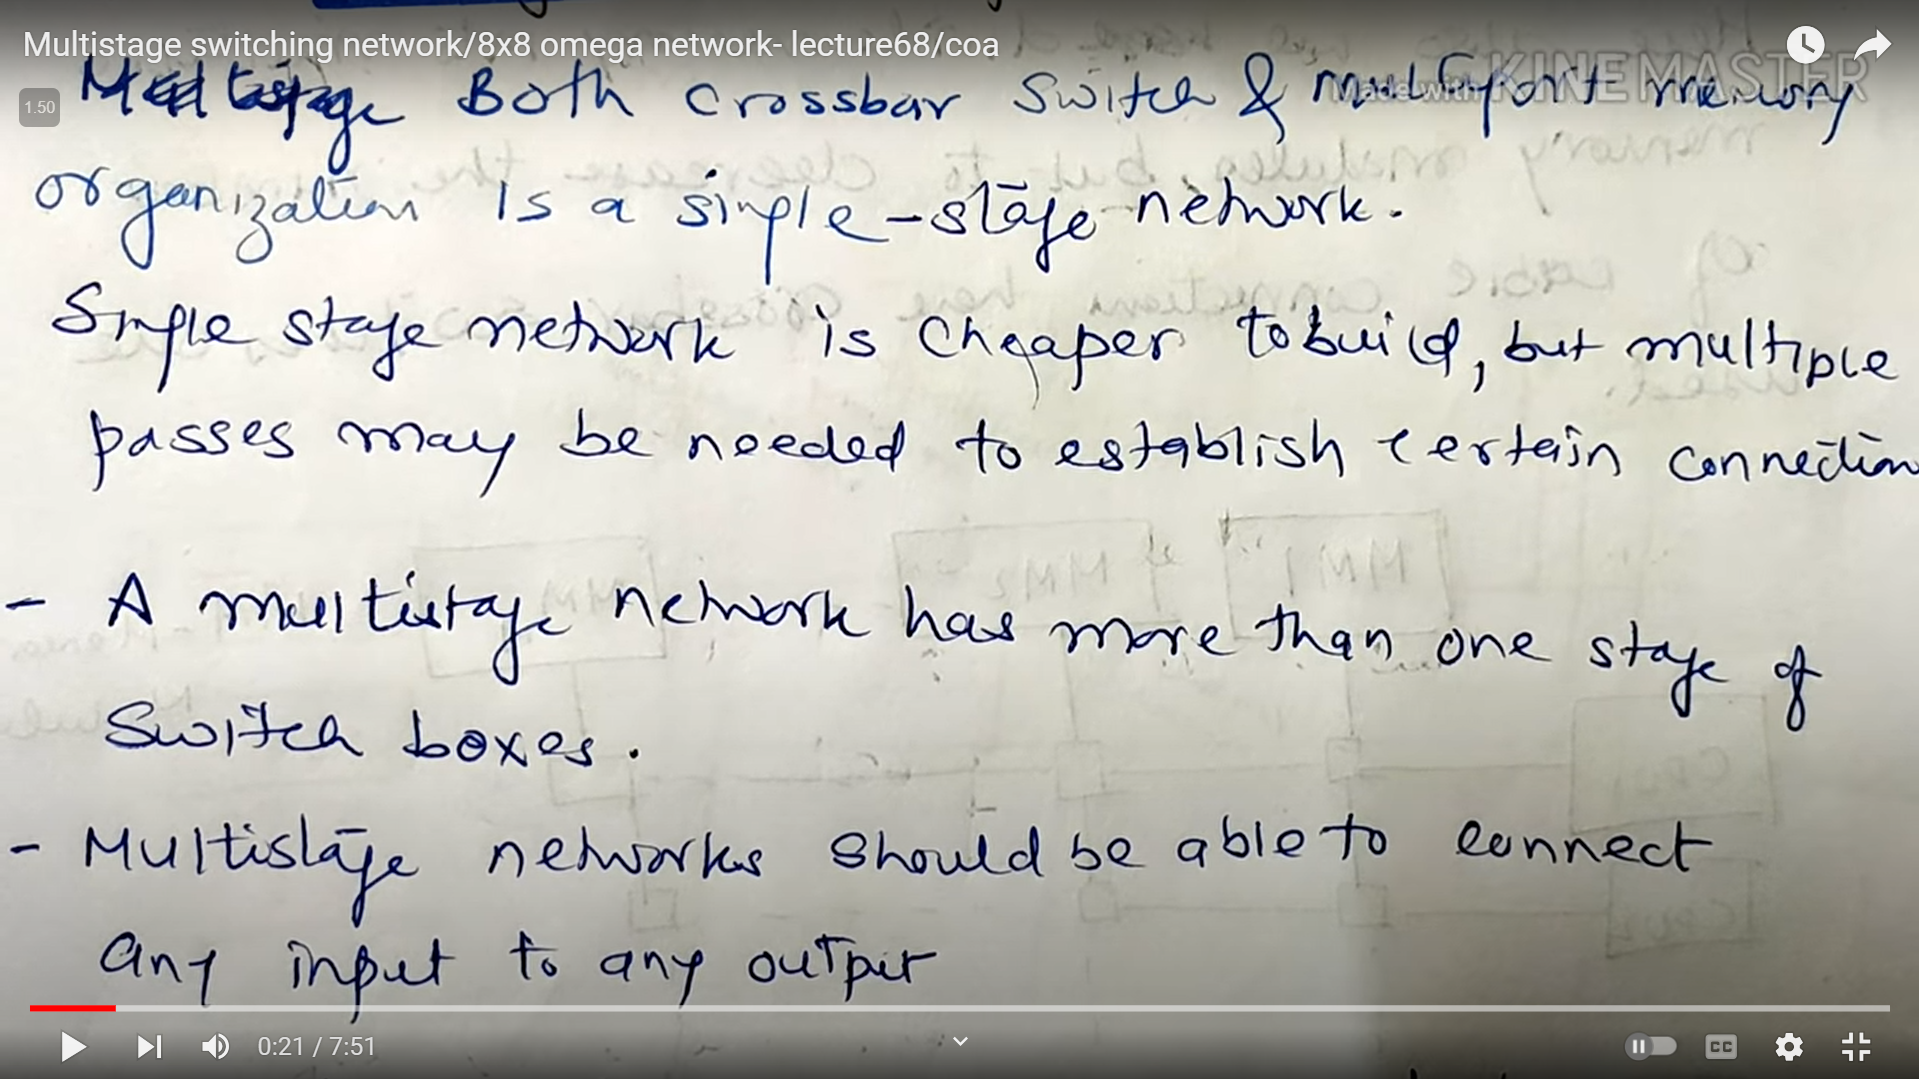 Multistage switching network/8x8 omega network- lecture68/coa
Made with KINEMASTER
1.50
Both crossbar switch & multiport memory
organization is a single-stage network.
Single stage network is cheaper to build, but multiple
passes may be needed to establish certain connection
- A multistage network has more than one stage of
switch boxes.
- Multistage networks should be able to connect
any input to any output
0:21 / 7:51
CC